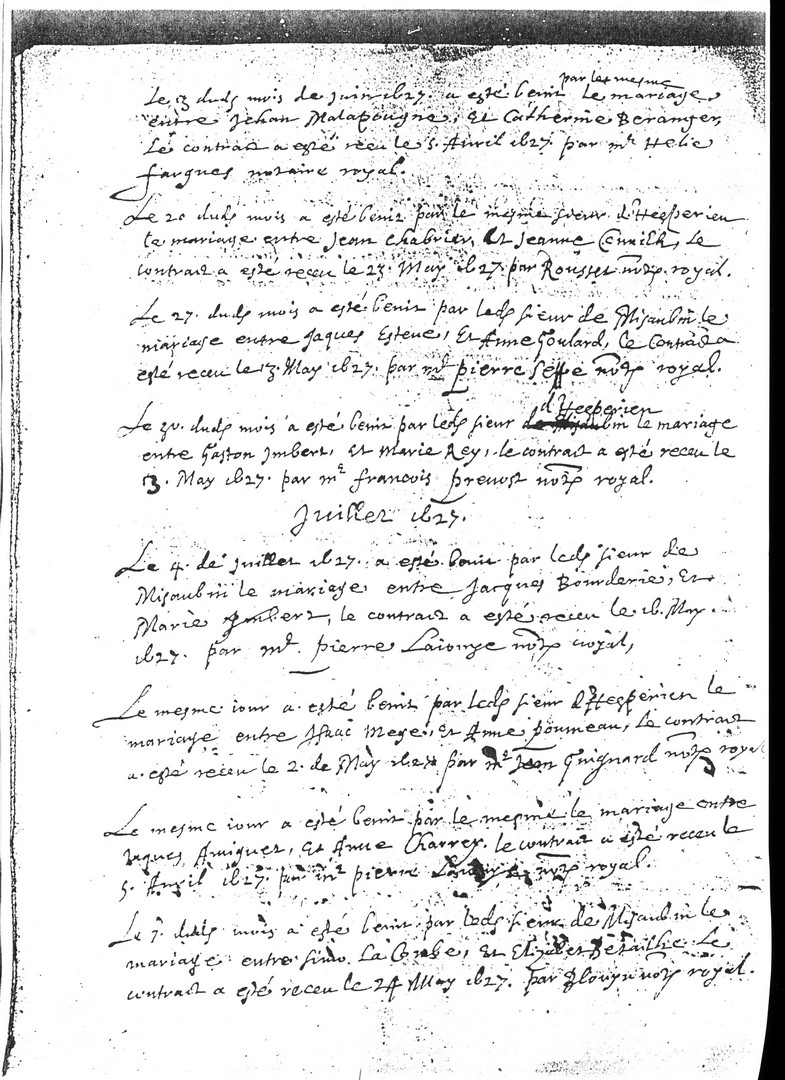 par les mesme
Le 3 duds mois de Juin 1627. a esté benit le mariage
entre Jehan Malapougne, Et Catherine Beranger,
Le contract a esté receu le 5. Avril 1627. par mr Helie
fargues notaire royal.
Le 20 duds mois a esté benit par le mesme sieur d'Hesperien
le mariage entre Jean Chabrier, Et Jeanne le
contract a esté receu le 23. May 1627. par Rousset notre royal.
Le 27. duds mois a esté benit par leds sieur de Misaubin le
mariage entre Jaques Esteve, Et Anne Goulard, Le Contract a
esté receu le 3. May 1627. par mr pierre notre royal.
d'Hesperien
Le 30. duds mois a esté benit par leds sieur le mariage
entre Gaston Imbert, Et Marie Rey, le contract a esté receu le
3. May 1627. par mre francois prevost notre royal.
Juillet 1627.
Le 4. de Juillet 1627. a esté benit par leds sieur de
Misaubin le mariage entre Jacques Bourderie, Et
Marie Imbert, le contract a esté receu le 16. May.
1627. par mr. pierre notre royal,
Le mesme iour a esté benit par leds sieur d'Hesperien le
mariage entre Isaac Mege, Et Anne poumeau, Le contract
a esté receu le 2. de May par mre Jean Guignard notre royal
Le mesme iour a esté benit par le mesme le mariage entre
Jaques Amiguet, Et Anne Charrer. le contract a esté receu le
5. Avril 1627. par mre pierre notre royal.
Le 7. duds mois a esté benit par leds sieur de Misaubin le
mariage entre La Combe, Et Elizabet Le
contract a esté receu le 24 May 1627. par notre royal.